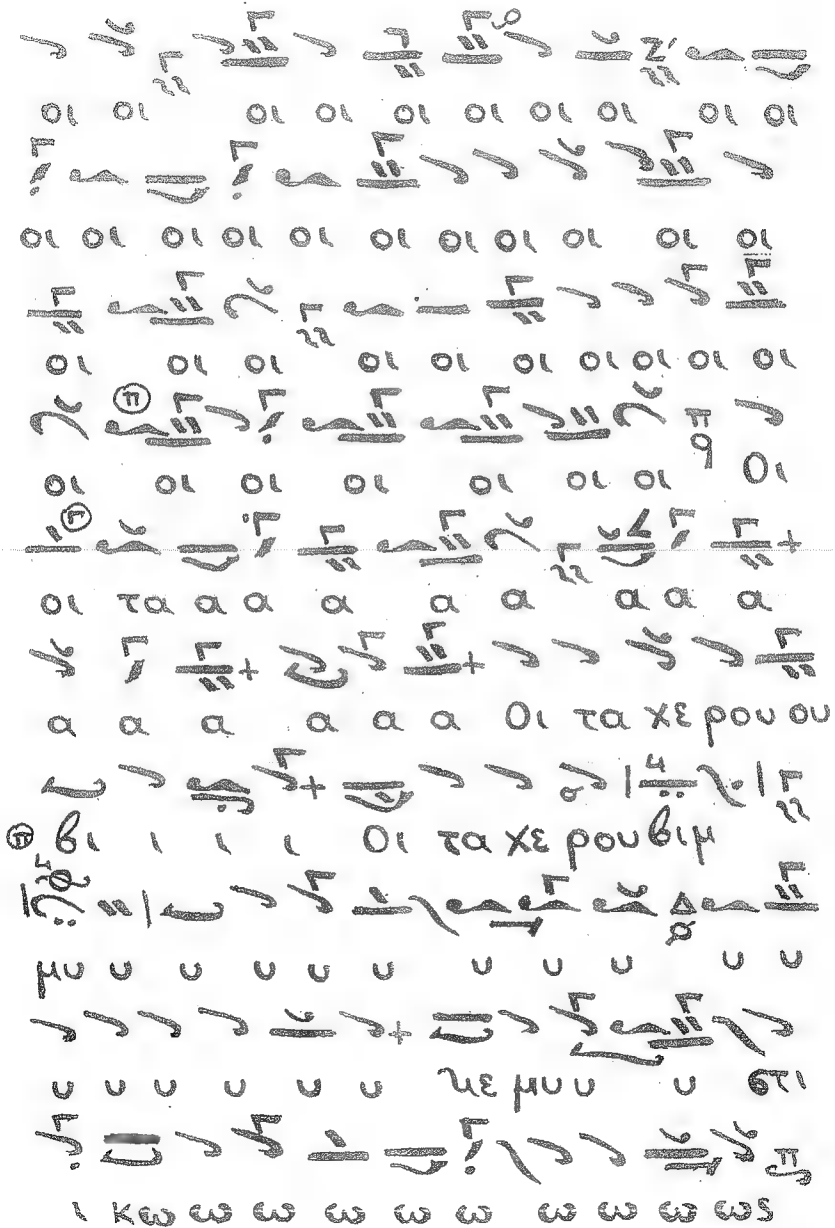 οι οι οι οι οι οι οι οι οι οι
οι οι οι οι οι οι οι οι οι οι οι
οι οι οι οι οι οι οι οι οι οι
οι οι οι οι οι οι οι Οι
οι τα α α α α α α α α
α α α α α α Οι τα χε ρου ου
βι ι ι ι Οι τα χε ρου βιμ
μυ υ υ υ υ υ υ υ υ υ υ
υ υ υ υ υ υ κε μυ υ υ στι
ι κω ω ω ω ω ω ω ω ω ως